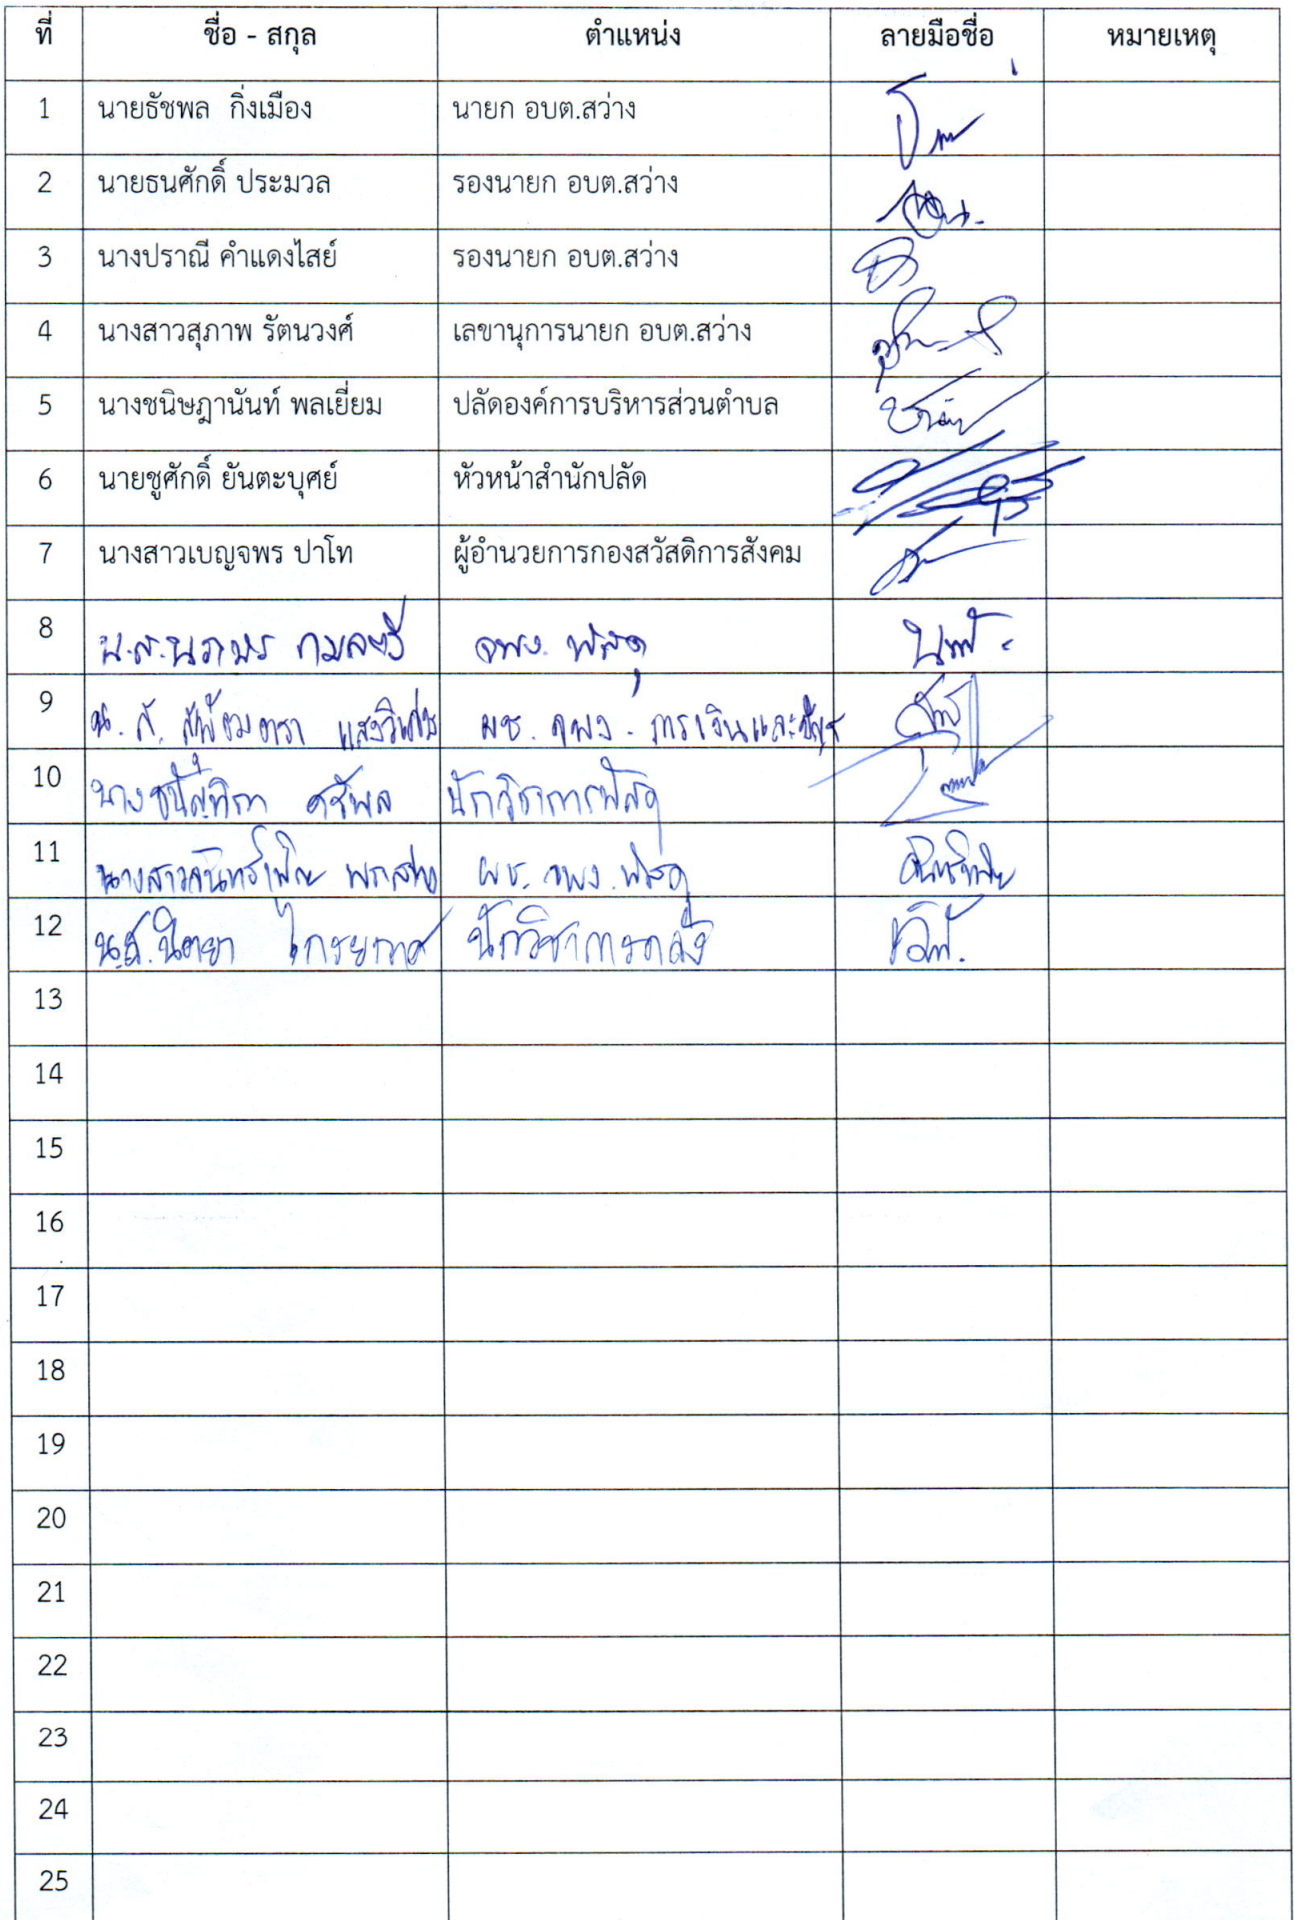 ที่ ชื่อ - สกุล ตำแหน่ง ลายมือชื่อ หมายเหตุ
1 นายธัชพล กิ่งเมือง นายก อบต.สว่าง
2 นายธนศักดิ์ ประมวล รองนายก อบต.สว่าง
3 นางปราณี คำแดงไสย์ รองนายก อบต.สว่าง
4 นางสาวสุภาพ รัตนวงศ์ เลขานุการนายก อบต.สว่าง
5 นางชนิษฎานันท์ พลเยี่ยม ปลัดองค์การบริหารส่วนตำบล
6 นายชูศักดิ์ ยันตะบุศย์ หัวหน้าสำนักปลัด
7 นางสาวเบญจพร ปาโท ผู้อำนวยการกองสวัสดิการสังคม
8 น.ส. จพง. พัสดุ
9 น.ส. ผช. จพง. การเงินและบัญชี
10 นาง นักวิชาการพัสดุ
11 นางสาวจันทร์เพ็ญ ผช. จพง. พัสดุ
12 น.ส. นิตยา นักวิชาการคลัง
13
14
15
16
17
18
19
20
21
22
23
24
25